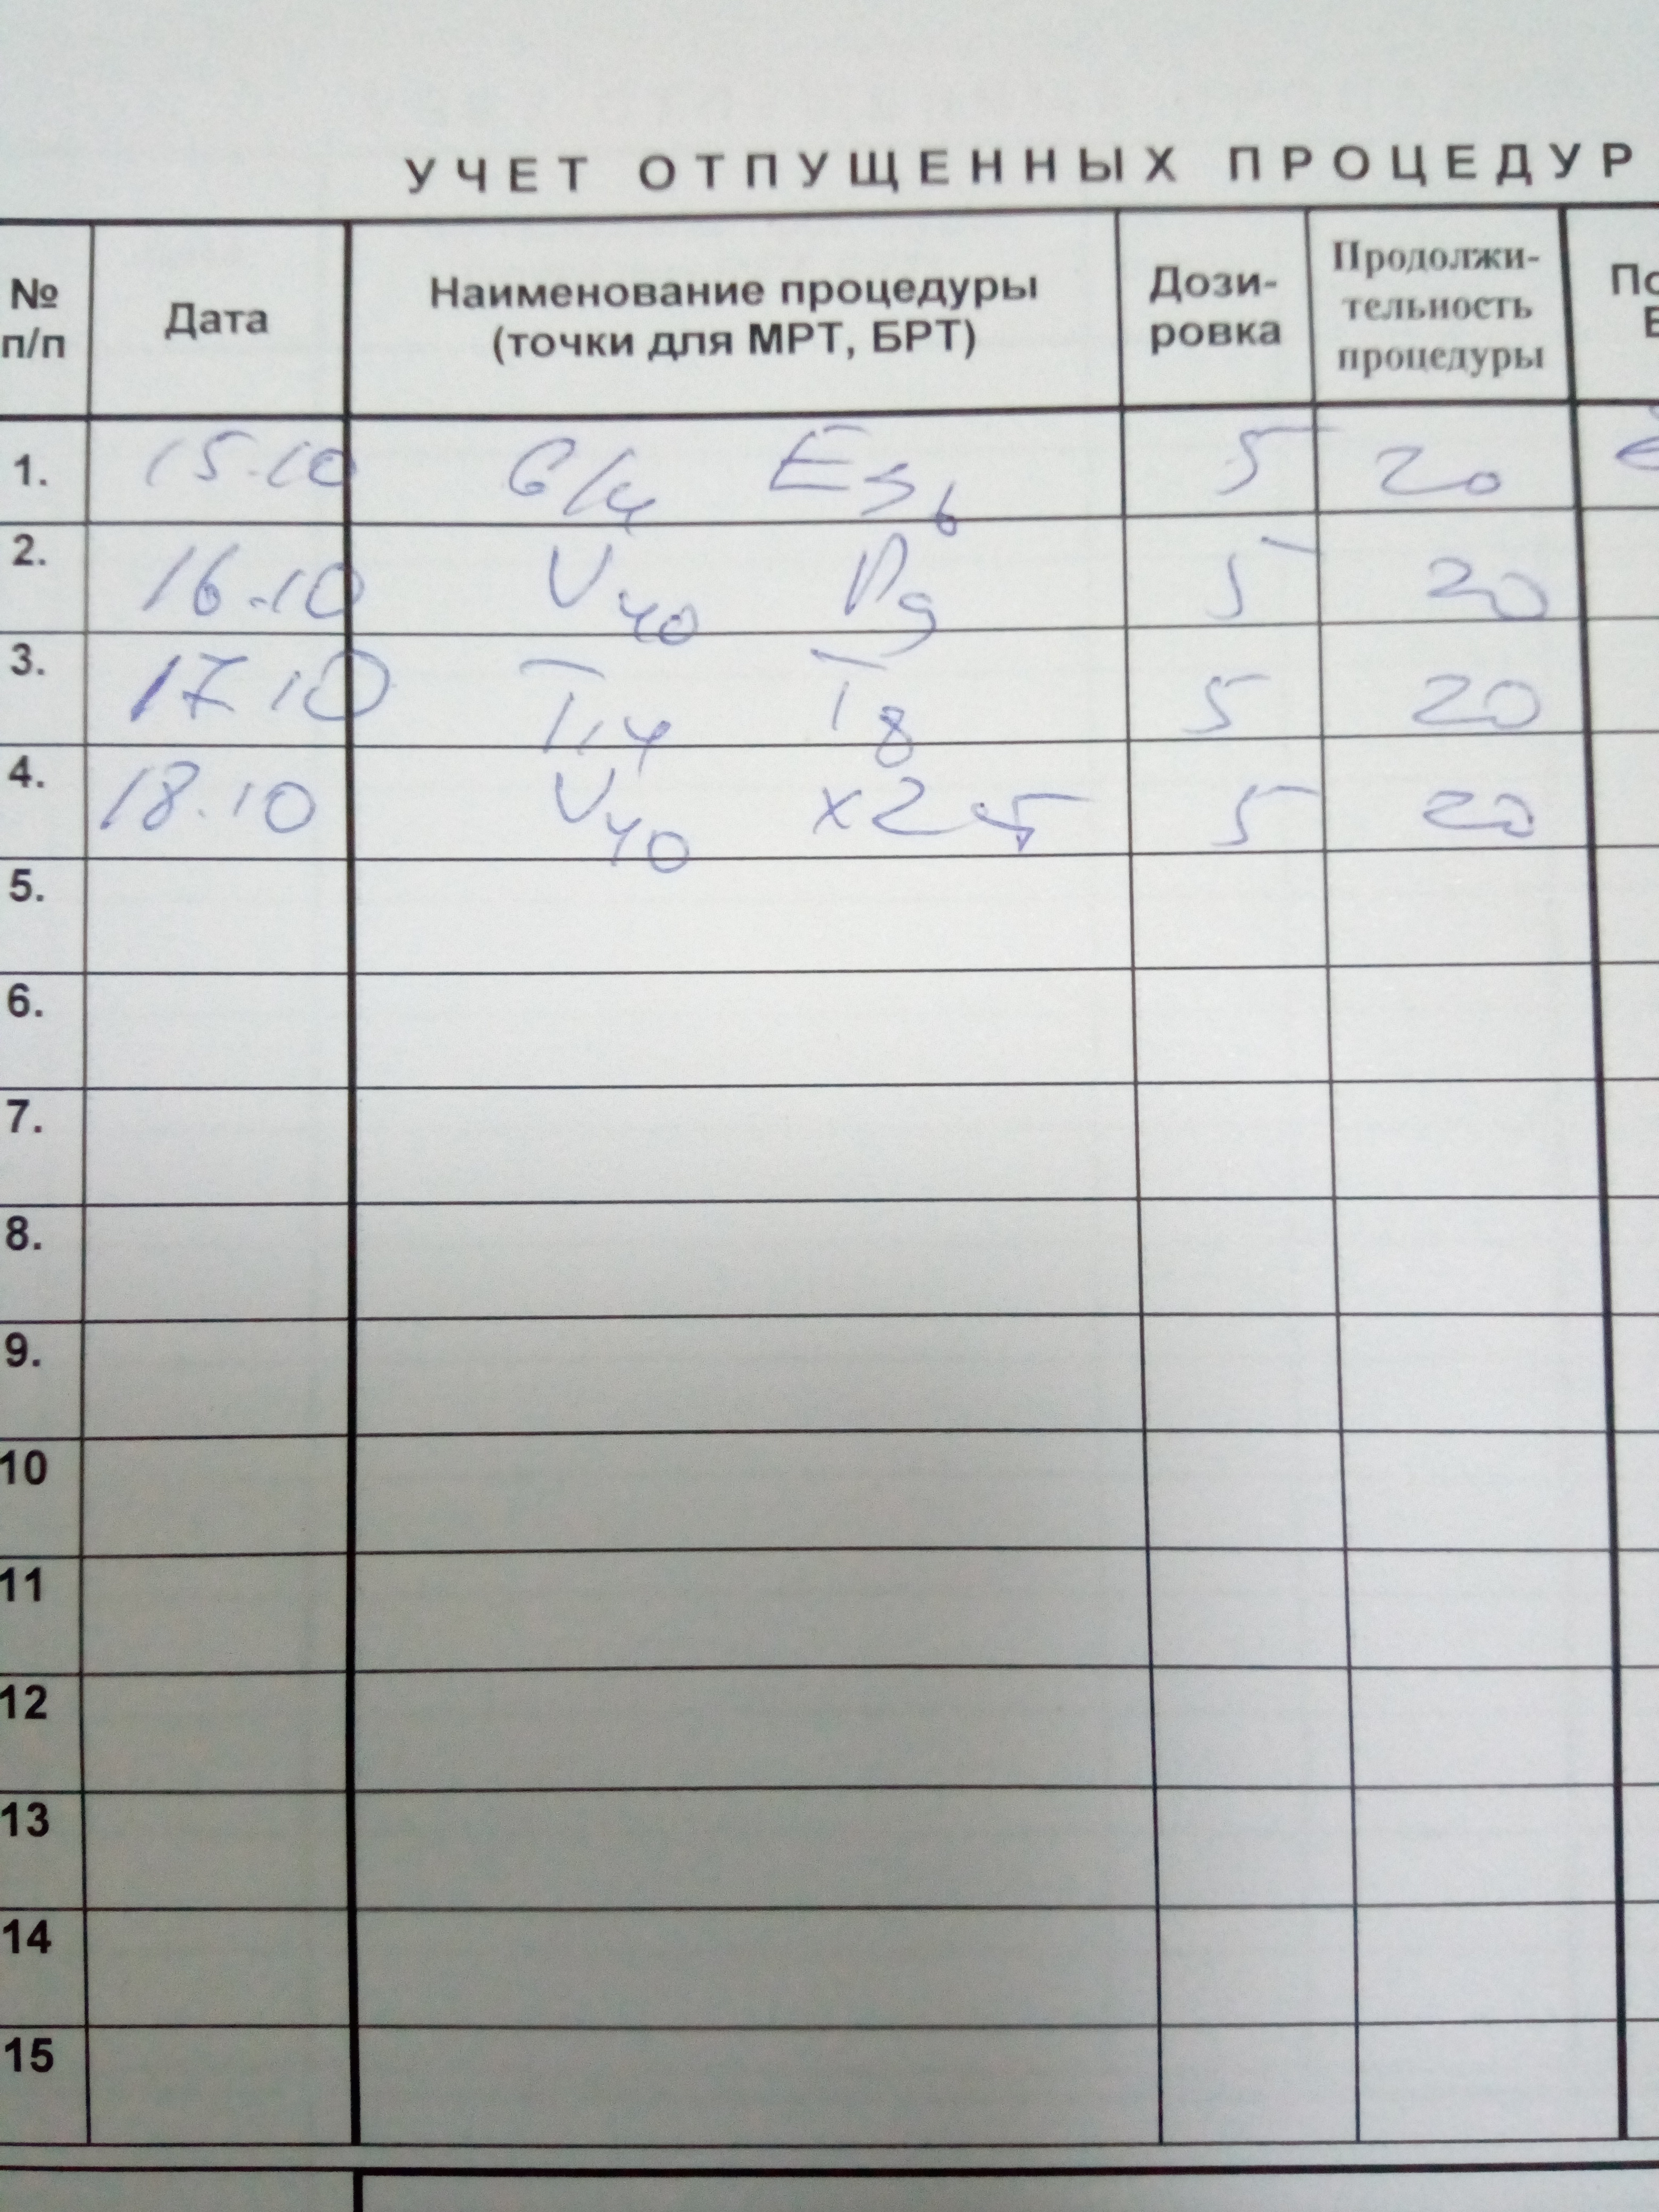 УЧЕТ ОТПУЩЕННЫХ ПРОЦЕДУР
№ п/п Дата Наименование процедуры (точки для МРТ, БРТ) Дози-ровка Продолжи-тельность процедуры
1. 15.10 5 20
2. 16.10 V40 P9 5 20
3. 17.10 T14 T8 5 20
4. 18.10 V40 5 20
5.
6.
7.
8.
9.
10
11
12
13
14
15